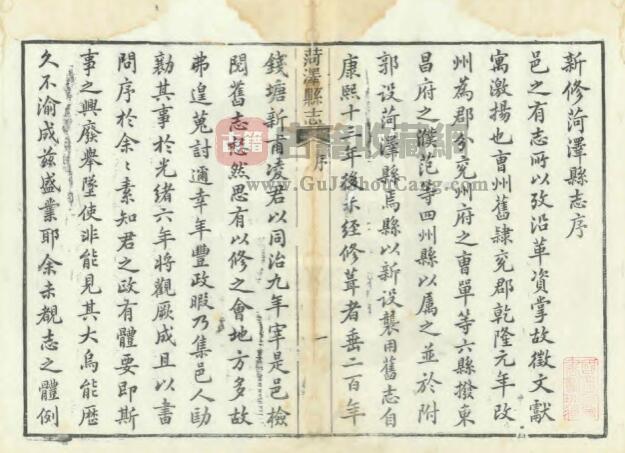 新修菏澤縣志序
邑之有志所以攷沿革資掌故徵文獻
寓激揚也曹州舊隸兗郡乾隆元年改
州為郡分兗州府之曹單等六縣撥東
昌府之濮范等四州縣以屬之並於附
郭設菏澤縣焉縣以新設襲用舊志自
康熙十三年後未經修葺者垂二百年
菏澤縣志
序
一
錢塘新甫凌君以同治九年宰是邑檢
閱舊志慭然思有以修之會地方多故
弗遑蒐討適幸年豐政暇乃集邑人勷
其事於光緒六年將觀厥成且以書
問序於余余素知君之政有體要即斯
事之興廢舉墜使非能見其大烏能歷
久不渝成茲盛業耶余未覩志之體例
古籍收藏網
www.GuJiShouCang.com